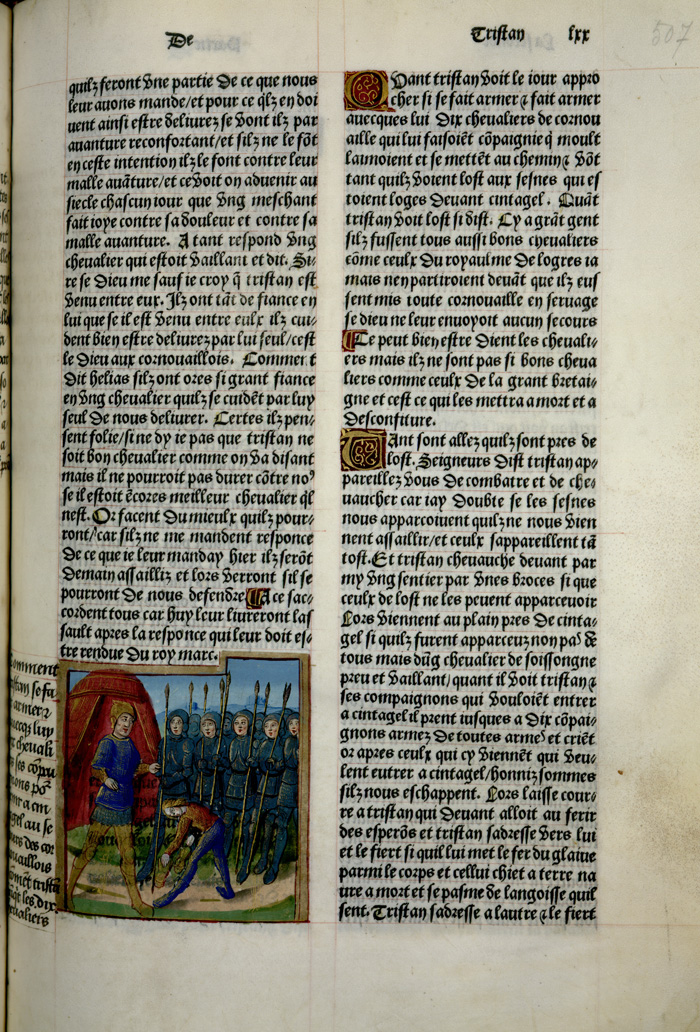 De
Tristan lxx
507
quilz feront vne partie de ce que nous
leur auons mande/et pour ce qͥlz en doi
uent ainsi estre deliurez se vont ilz par
auanture reconfortant/et silz ne le fōt
en ceste intention ilz le font contre leur
malle auāture/et ce voit on aduenir au
siecle chascun iour que vng meschant
fait ioye contre sa douleur et contre sa
malle auanture. A tant respond vng
cheualier qui estoit vaillant et dit. Si⸗
re se dieu me sauf ie croy q̄ tristan est
venu entre eux. Ilz ont tāt de fiance en
lui que se il est venu entre eulx ilz cui⸗
dent bien estre deliurez par lui seul/cest
le dieu aux cornouaillois. Comment
dit helias silz ont ores si grant fiance
en vng cheualier quilz se cuidēt par luy
seul de nous deliurer. Certes ilz pen⸗
sent folie/si ne dy ie pas que tristan ne
soit bon cheualier comme on va disant
mais il ne pourroit pas durer cōtre noꝰ
se il estoit ēcores meilleur cheualier qͥl
nest. Or facent du mieulx quilz pour⸗
ront/car silz ne me mandent responce
de ce que ie leur manday hier ilz serōt
demain assailliz et lors verront sil se
pourront de nous defendre A ce sac⸗
cordent tous car huy leur liureront las
sault apres la responce qui leur doit es⸗
tre rendue du roy marc.
omment
istan se fit
armer ⁊
uecqs luy
cheuali
s ses cōpa
nons poͬ
ir a cin
gel au se
urs des cor
uaillois
omēt tristā
les dix
eualiers
Quant tristan voit le iour appro
cher si se fait armer ⁊ fait armer
auecques lui dix cheualiers de cornou
aille qui lui faisoiēt cōpaignie q̄ moult
laimoient et se mettēt au chemin ⁊ vōt
tant quilz voient lost aux sesnes qui es
toient loges deuant cintagel. Quāt
tristan voit lost si dist. Cy a grāt gent
silz fussent tous aussi bons cheualiers
cōme ceulx du royaulme de logres ia
mais nen partiroient deuāt que ilz eus
sent mis toute cornouaille en seruage
se dieu ne leur enuoyoit aucun secours
Ce peut bien estre dient les cheuali⸗
ers mais ilz ne sont pas si bons cheua
liers comme ceulx de la grant bretai⸗
gne et cest ce qui les mettra a mort et a
desconfiture.
Tant sont allez quilz sont pres de
lost. Seigneurs dist tristan ap⸗
pareillez vous de combatre et de che⸗
uaucher car iay doubte se les sesnes
nous apparcoiuent quilz ne nous vien
nent assaillir/et ceulx sappareillent tā
tost. Et tristan cheuauche deuant par
my vng sentier par vnes broces si que
ceulx de lost ne les peuent apparceuoir
Lors viennent au plain pres de cinta⸗
gel si quilz furent apparceuz non pas de
tous mais dūg cheualier de soissongne
preu et vaillant/quant il voit tristan ⁊
ses compaignons qui vouloiēt entrer
a cintagel il prent iusques a dix cōpai⸗
gnons armez de toutes armes et criēt
or apres ceulx qui cy viennēt qui veu⸗
lent eutrer a cintagel/honniz sommes
silz nous eschappent. Lors laisse cour⸗
re a tristan qui deuant alloit au ferir
des esperōs et tristan sadresse vers lui
et le fiert si quil lui met le fer du glaiue
parmi le corps et cellui chiet a terre na
ure a mort et se pasme de langoisse quil
sent. Tristan sadresse a lautre ⁊ le fiert